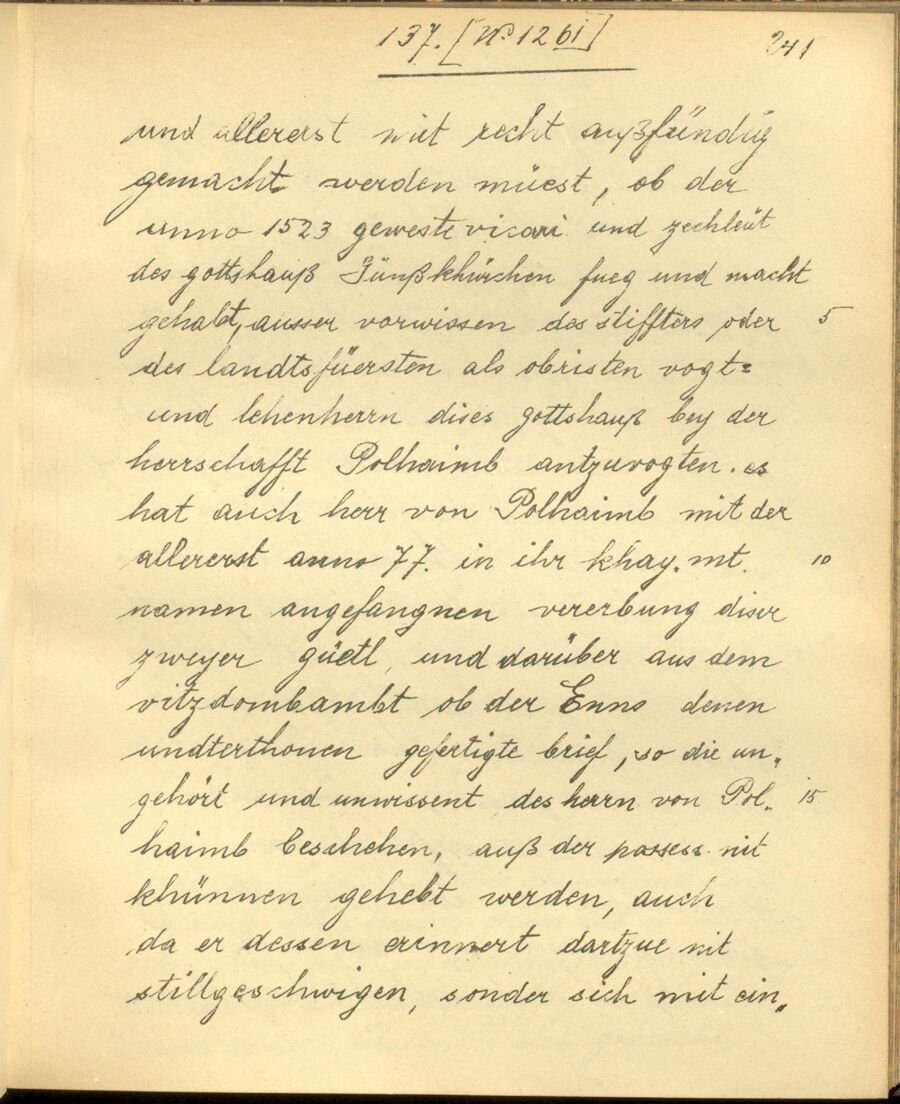 137. [No 1261]
241
und allererst mit recht außfündig
gemacht werden müest, ob der
anno 1523 geweste vicari und zechleüt
des gottshauß Fünßkhürchen fueg und macht
gehabt, ausser vorwissen des stiffters oder 5
des landtsfüersten als obristen vogt=
und lehenherrn dises gottshauß bey der
herrschafft Polhaimb antzuvogten. es
hat auch herr von Polhaimb mit der
allererst anno 77. in ihr khay. mt. 10
namen angefangnen vererbung diser
zweyer güetl, und darüber aus dem
vitzdombambt ob der Enns denen
undterthonen gefertigte brief, so die un„
gehört und unwissent des herrn von Pol„ 15
haimb beschehen, auß der possess nit
khünnen gehebt werden, auch
da er dessen erinnert dartzue nit
stillgeschwigen, sonder sich mit ein„